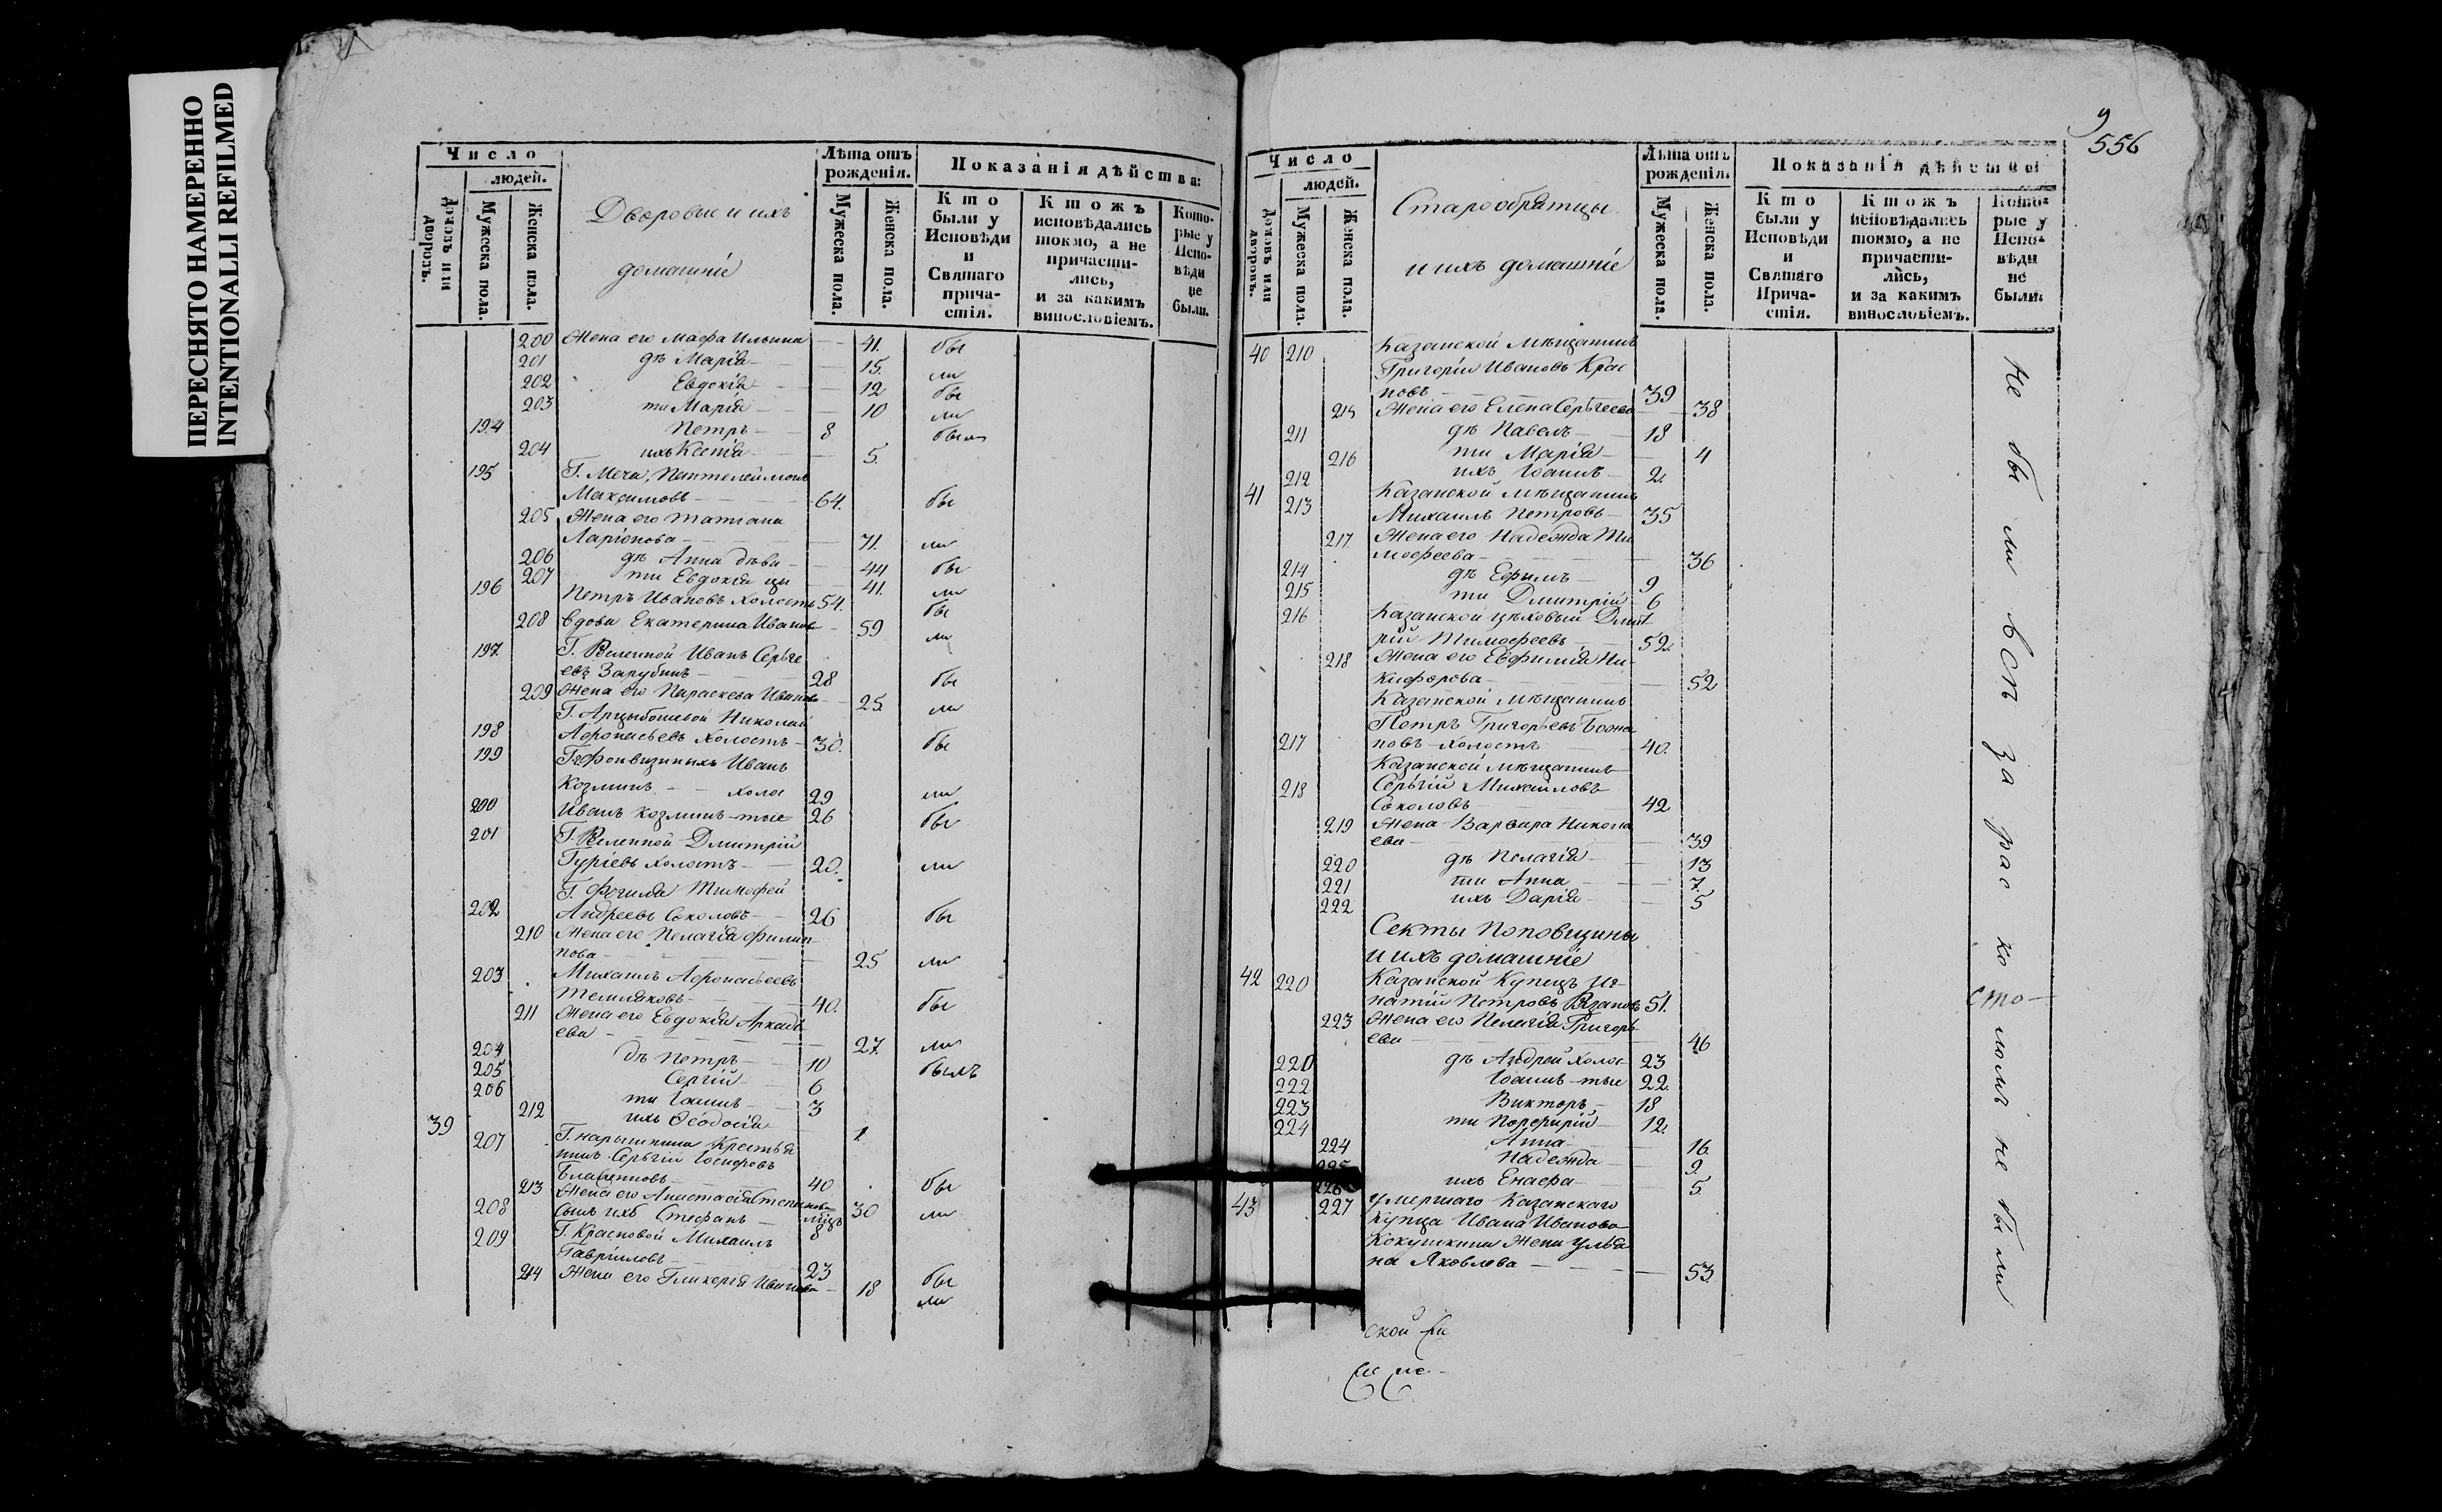 ПЕРЕСНЯТО НАМЕРЕННО
INTENTIONALLI REFILMED
Число
людей.
Домовъ или дворовъ.
Мужеска пола.
Женска пола.
Дворовые и ихъ
домашніе
Лѣта отъ рожденія.
Мужеска пола.
Женска пола.
Показанія дѣйства:
Кто были у Исповѣди и Святаго причастія.
Ктожъ исповѣдались токмо, а не причастились, и за какимъ винословіемъ.
Которые у Исповѣди не были.
200 Жена его Марфа Ильина 41. бы
201 дѣ Марія 15. ли
202 Евдокія 12 бы
203 ти Марія 10 ли
194 Петръ 8 былъ
204 ихъ Ксенія 5.
195 Г. Меча, Пантелеймонъ
Максимовъ 64. бы
205 Жена его Татіана
Ларіонова 71. ли
206 дѣ Анна дѣви 44 бы
207 ти Евдокія цы 41. ли
196 Петръ Ивановъ холостъ 54. бы
208 вдова Екатерина Иванова 59 ли
197. Иванъ Сергѣ
евъ Зарубинъ 28 бы
209 Жена его Параскева Иванова 25. ли
Г. Арцыбошевой Николай
198 Афонасьевъ холостъ 30. бы
199 Г. Фонвизиныхъ Иванъ
Козминъ холос 29 ли
200 Иванъ Козминъ тые 26 бы
201 Дмитрій
Гуріевъ холостъ 20. ли
Тимофей
202 Андреевъ Соколовъ 26 бы
210 Жена его Пелагія Филип
пова 25 ли
203 Михаилъ Афонасьевъ
Темляковъ 40. бы
211 Жена его Евдокія Аркадь
ева 27. ли
204 дѣ Петръ 10 былъ
205 Сергій 6
206 ти Іоаннъ 3
212 ихъ Ѳеодосія 1.
39 207 Г. Нарышкина Крестья
нинъ Сергѣй Іосифовъ
40 бы
213 Жена его Анастасія Степанова 30 ли
208 сынъ ихъ Стефанъ мѣцъ 8
209 Г. Красновой Михаилъ
Гавриловъ 23 бы
214 Жена его Гликерія Иванова 18 ли
9
556
Число
людей.
Домовъ или дворовъ.
Мужеска пола.
Женска пола.
Старообрятцы
и ихъ домашніе
Лѣта отъ рожденія.
Мужеска пола.
Женска пола.
Показанія дѣйства
Кто были у Исповѣди и Святаго Причастія.
Ктожъ исповѣдались токмо, а не причастились, и за какимъ винословіемъ.
Которые у Исповѣди не были.
40 210 Казанской мѣщанинъ
Григорій Ивановъ Крас
новъ 39
215 Жена его Елена Сергѣева 38
211 дѣ Павелъ 18
216 ти Марія 4
212 ихъ Іоаннъ 2.
41 213 Казанской мѣщанинъ
Михаилъ Петровъ 35
217. Жена его Надежда Ти
мофеева 36
214 дѣ Ефимъ 9
215 ти Дмитрій 6
216 Казанской цѣховый Дмит
рій Тимофеевъ 52.
218 Жена его Евфимія Ни
кифорова 52
Казанской мѣщанинъ
Петръ Григорьевъ Божа
217 новъ холостъ 40.
Казанской мѣщанинъ
218 Сергѣй Михайловъ
Соколовъ 42
219 Жена Варвара Никола
ева 39
220 дѣ Пелагія 13
221 ти Анна 7.
222 ихъ Дарія 5
Секты Поповщины
и ихъ домашніе
42 220 Казанской Купецъ Иг
натій Петровъ Рязановъ 51.
223 Жена его Пелагія Григорь
ева 46
220 дѣ Андрей холос 23
222 Іоаннъ тые 22.
223 Викторъ 18
224 ти Порфирій 12.
224 Анна 16.
225 Надежда 9.
226 ихъ Енафа 5.
43 227 умершаго Казанскаго
Купца Ивана Иванова
Кокушкина Жена Улья
на Яковлева 53.
Не бы ли всѣ за рас ко
сто ломъ не были
ской